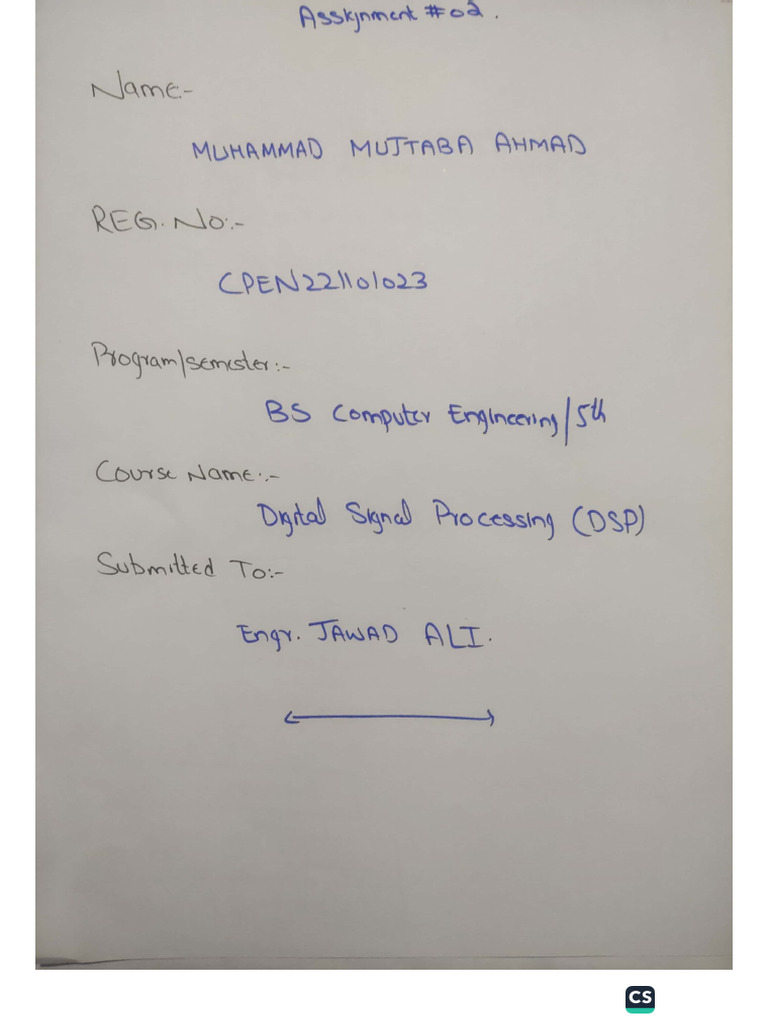 Assignment #02.
Name:-
MUHAMMAD MUJTABA AHMAD
REG. No:-
CPEN221101023
Program/semester:-
BS Computer Engineering/5th
Course Name:-
Digital Signal Processing (DSP)
Submitted To:-
Engr. JAWAD ALI.
CS